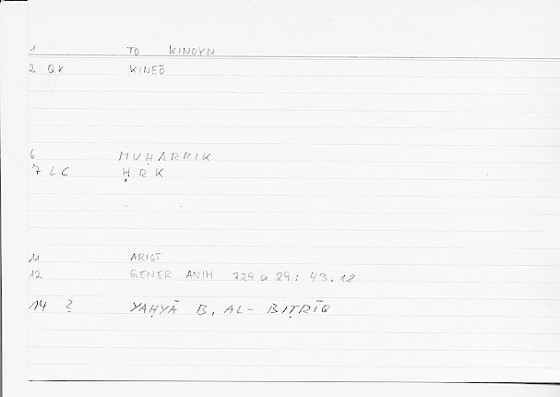 1 TO KINOYN
2 QV KINEŌ
6 MUḤARRIK
7 LC ḤRK
11 ARIST
12 GENER ANIM 729 a 29 : 43.18
14 ? YAḤYĀ B. AL-BIṬRĪQ